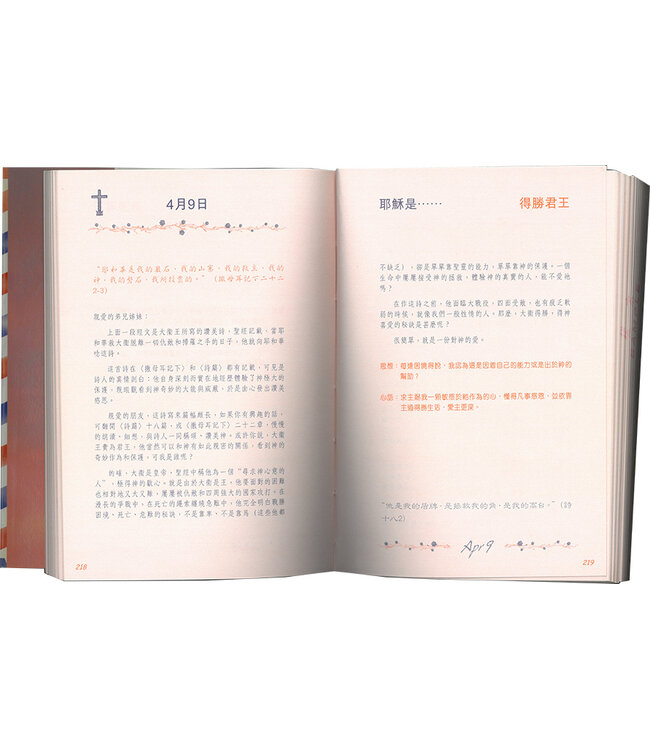 4月9日
"耶和華是我的巖石,我的山寨,我的救主,我的
神,我的磐石,我所投靠的。"(撒母耳記下二十二
2-3)
親愛的弟兄姊妹:
上面一段經文是大衛王所寫的讚美詩,聖經記載,當耶
和華救大衛脫離一切仇敵和掃羅之手的日子,他就向耶和華
唸這詩。
這首詩在〈撒母耳記下〉和〈詩篇〉都有記載,可見是
詩人的真情剖白:他自身深刻而實在地經歷體驗了神極大的
保護,親眼觀看到神奇妙的大能與威嚴,於是由心發出讚美
感恩。
親愛的朋友,這詩寫來篇幅頗長,如果你有興趣的話,
可翻閱〈詩篇〉十八篇,或〈撒母耳記下〉二十二章,慢慢
的誦讀、細想,與詩人一同稱頌、讚美神。或許你說,大衛
王貴為君王,他當然可以和神有如此親密的關係,看到神的
奇妙作為和保護,可我是誰呢?
的確,大衛是皇帝,聖經中稱他為一個"尋求神心意的
人",極得神的歡心。就是由於大衛是王,他要面對的困難
也相對地又大又難,屢屢被仇敵和四周強大的國家攻打。在
漫長的爭戰中,在死亡的繩索纏繞危難中,他完全明白戰勝
困境、死亡、危難的秘訣,不是靠車、不是靠馬(這些他都
218
耶穌是⋯⋯
得勝君王
不缺乏),卻是單單靠聖靈的能力,單單靠神的保護。一個
生命中屢屢接受神的拯救,體驗神的真實的人,能不愛祂
嗎?
在作這詩之前,他面臨大戰役,四面受敵,也有疲乏軟
弱的時候,就像我們一般性情的人。那麼,大衛得勝,得神
喜愛的秘訣是甚麼呢?
很簡單,就是一份對神的愛。
思想:每逢困境得脫,我認為這是因着自己的能力或是出於神的
幫助?
心語:求主賜我一顆敏感於祂作為的心,懂得凡事感恩,並依靠
主過得勝生活,愛主更深。
"他是我的盾牌,是拯救我的角,是我的高台。"(詩
十八2)
Apr 9
219